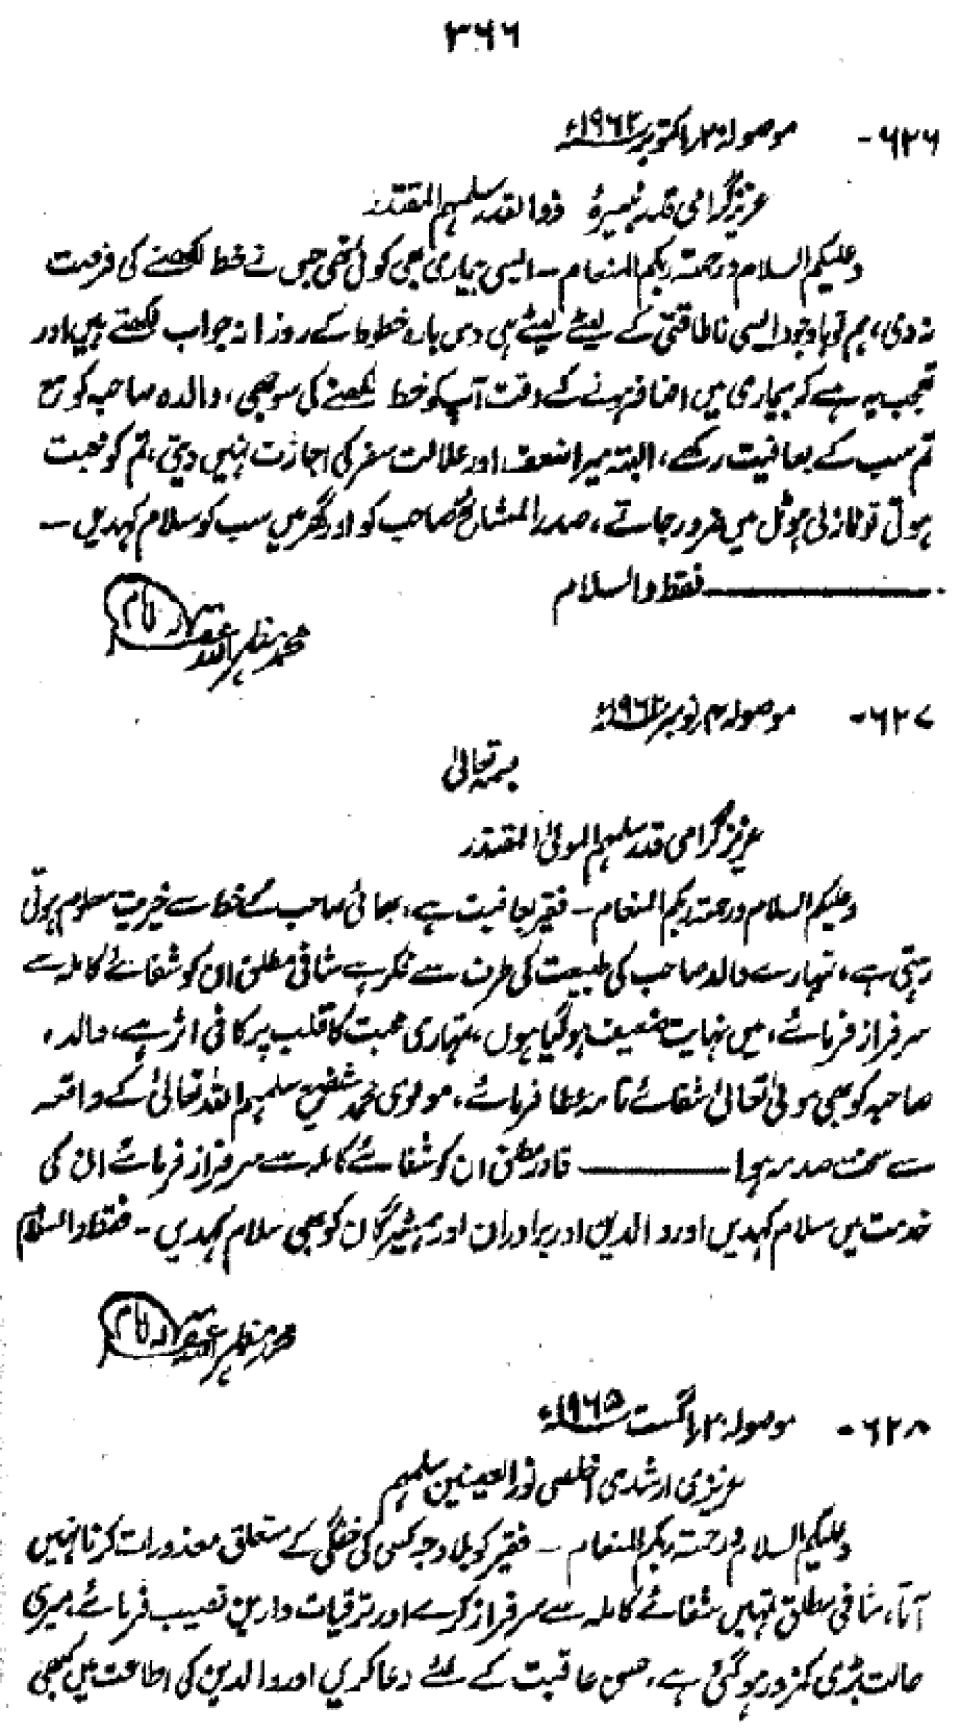 ۳۶۶
۶۲۶- موصولہ ۲؍اکتوبر ۱۹۶۲ء
عزیز گرامی قدر نبیرۂ ذوالقدر سلمہم المقتدر
وعلیکم السلام ورحمتہ ربکم المنعام ـ ایسی بیماری بھی کوئی تھی جس نے خط لکھنے کی فرصت
نہ دی، ہم تو باوجود ایسی ناطاقتی کے لیٹے لیٹے ہی دس بارہ خطوط کے روزانہ جواب لکھتے ہیں اور
تعجب یہ ہے کہ بیماری میں اضافہ ہونے کے وقت آپ کو خط لکھنے کی سوجھی، والدہ صاحبہ کو مع
تم سب کے بعافیت رکھے، البتہ میرا ضعف اور علالت سفر کی اجازت نہیں دیتی، تم کو محبت
ہوتی تو نازلی ہوٹل میں ضرور جاتے، صدر المشائخ صاحب کو اور گھر میں سب کو سلام کہدیں ـ
فقط والسلام
محمد مظہر اللہ غفرلہ
۶۲۷- موصولہ ۴؍نومبر ۱۹۶۲ء
بسمہ تعالیٰ
عزیز گرامی قدر سلمہم المولیٰ المقتدر
وعلیکم السلام ورحمتہ ربکم المنعام ـ فقیر بعافیت ہے، بھائی صاحب کے خط سے خیریت معلوم ہوتی
رہتی ہے، تمہارے والد صاحب کی طبیعت کی طرف سے فکر ہے شافی مطلق ان کو شفائے کاملہ سے
سرفراز فرمائے، میں نہایت ضعیف ہوگیا ہوں، تمہاری محبت کا قلب پر کافی اثر ہے، والدہ
صاحبہ کو بھی مولیٰ تعالیٰ شفائے تامہ عطا فرمائے، مولوی محمد شفیع سلمہم اللہ تعالیٰ کے واقعہ
سے سخت صدمہ ہوا ــــــ قادر مطلق ان کو شفائے کاملہ سے سرفراز فرمائے ان کی
خدمت میں سلام کہدیں اور والدین اور برادران اور ہمشیرگان کو بھی سلام کہدیں ـ فقط والسلام
محمد مظہر اللہ غفرلہ
۶۲۸- موصولہ ۲؍اگست ۱۹۶۵ء
عزیزی ارشدی اخلصی نور العینین سلمہم
وعلیکم السلام ورحمتہ ربکم المنعام ـ فقیر کو بلا وجہ کسی کی خفگی کے متعلق معذورات کرنا نہیں
آتا، شافی مطلق تمہیں شفائے کاملہ سے سرفراز کرے اور ترقیات دارین نصیب فرمائے، میری
حالت بڑی کمزور ہوگئی ہے، حسن عاقبت کے لئے دعا کریں اور والدین کی اطاعت میں کبھی